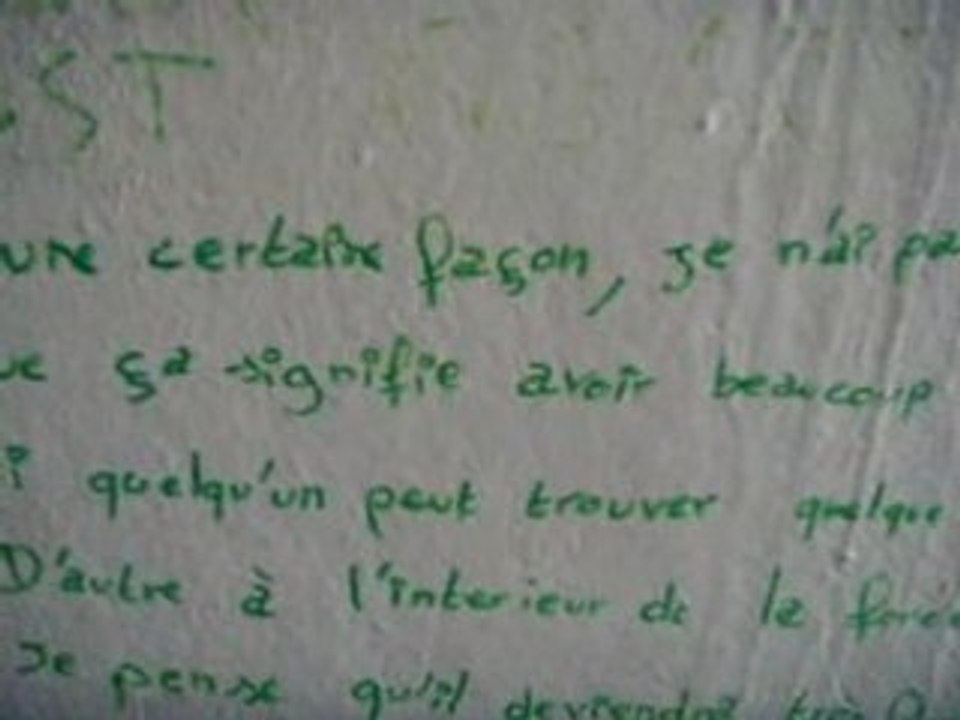 ST
une certaine façon, je n'ai pa
ue ça signifie avoir beaucoup
i quelqu'un peut trouver quelque
D'autre à l'interieur de la
Je pense qu'il deviendrai